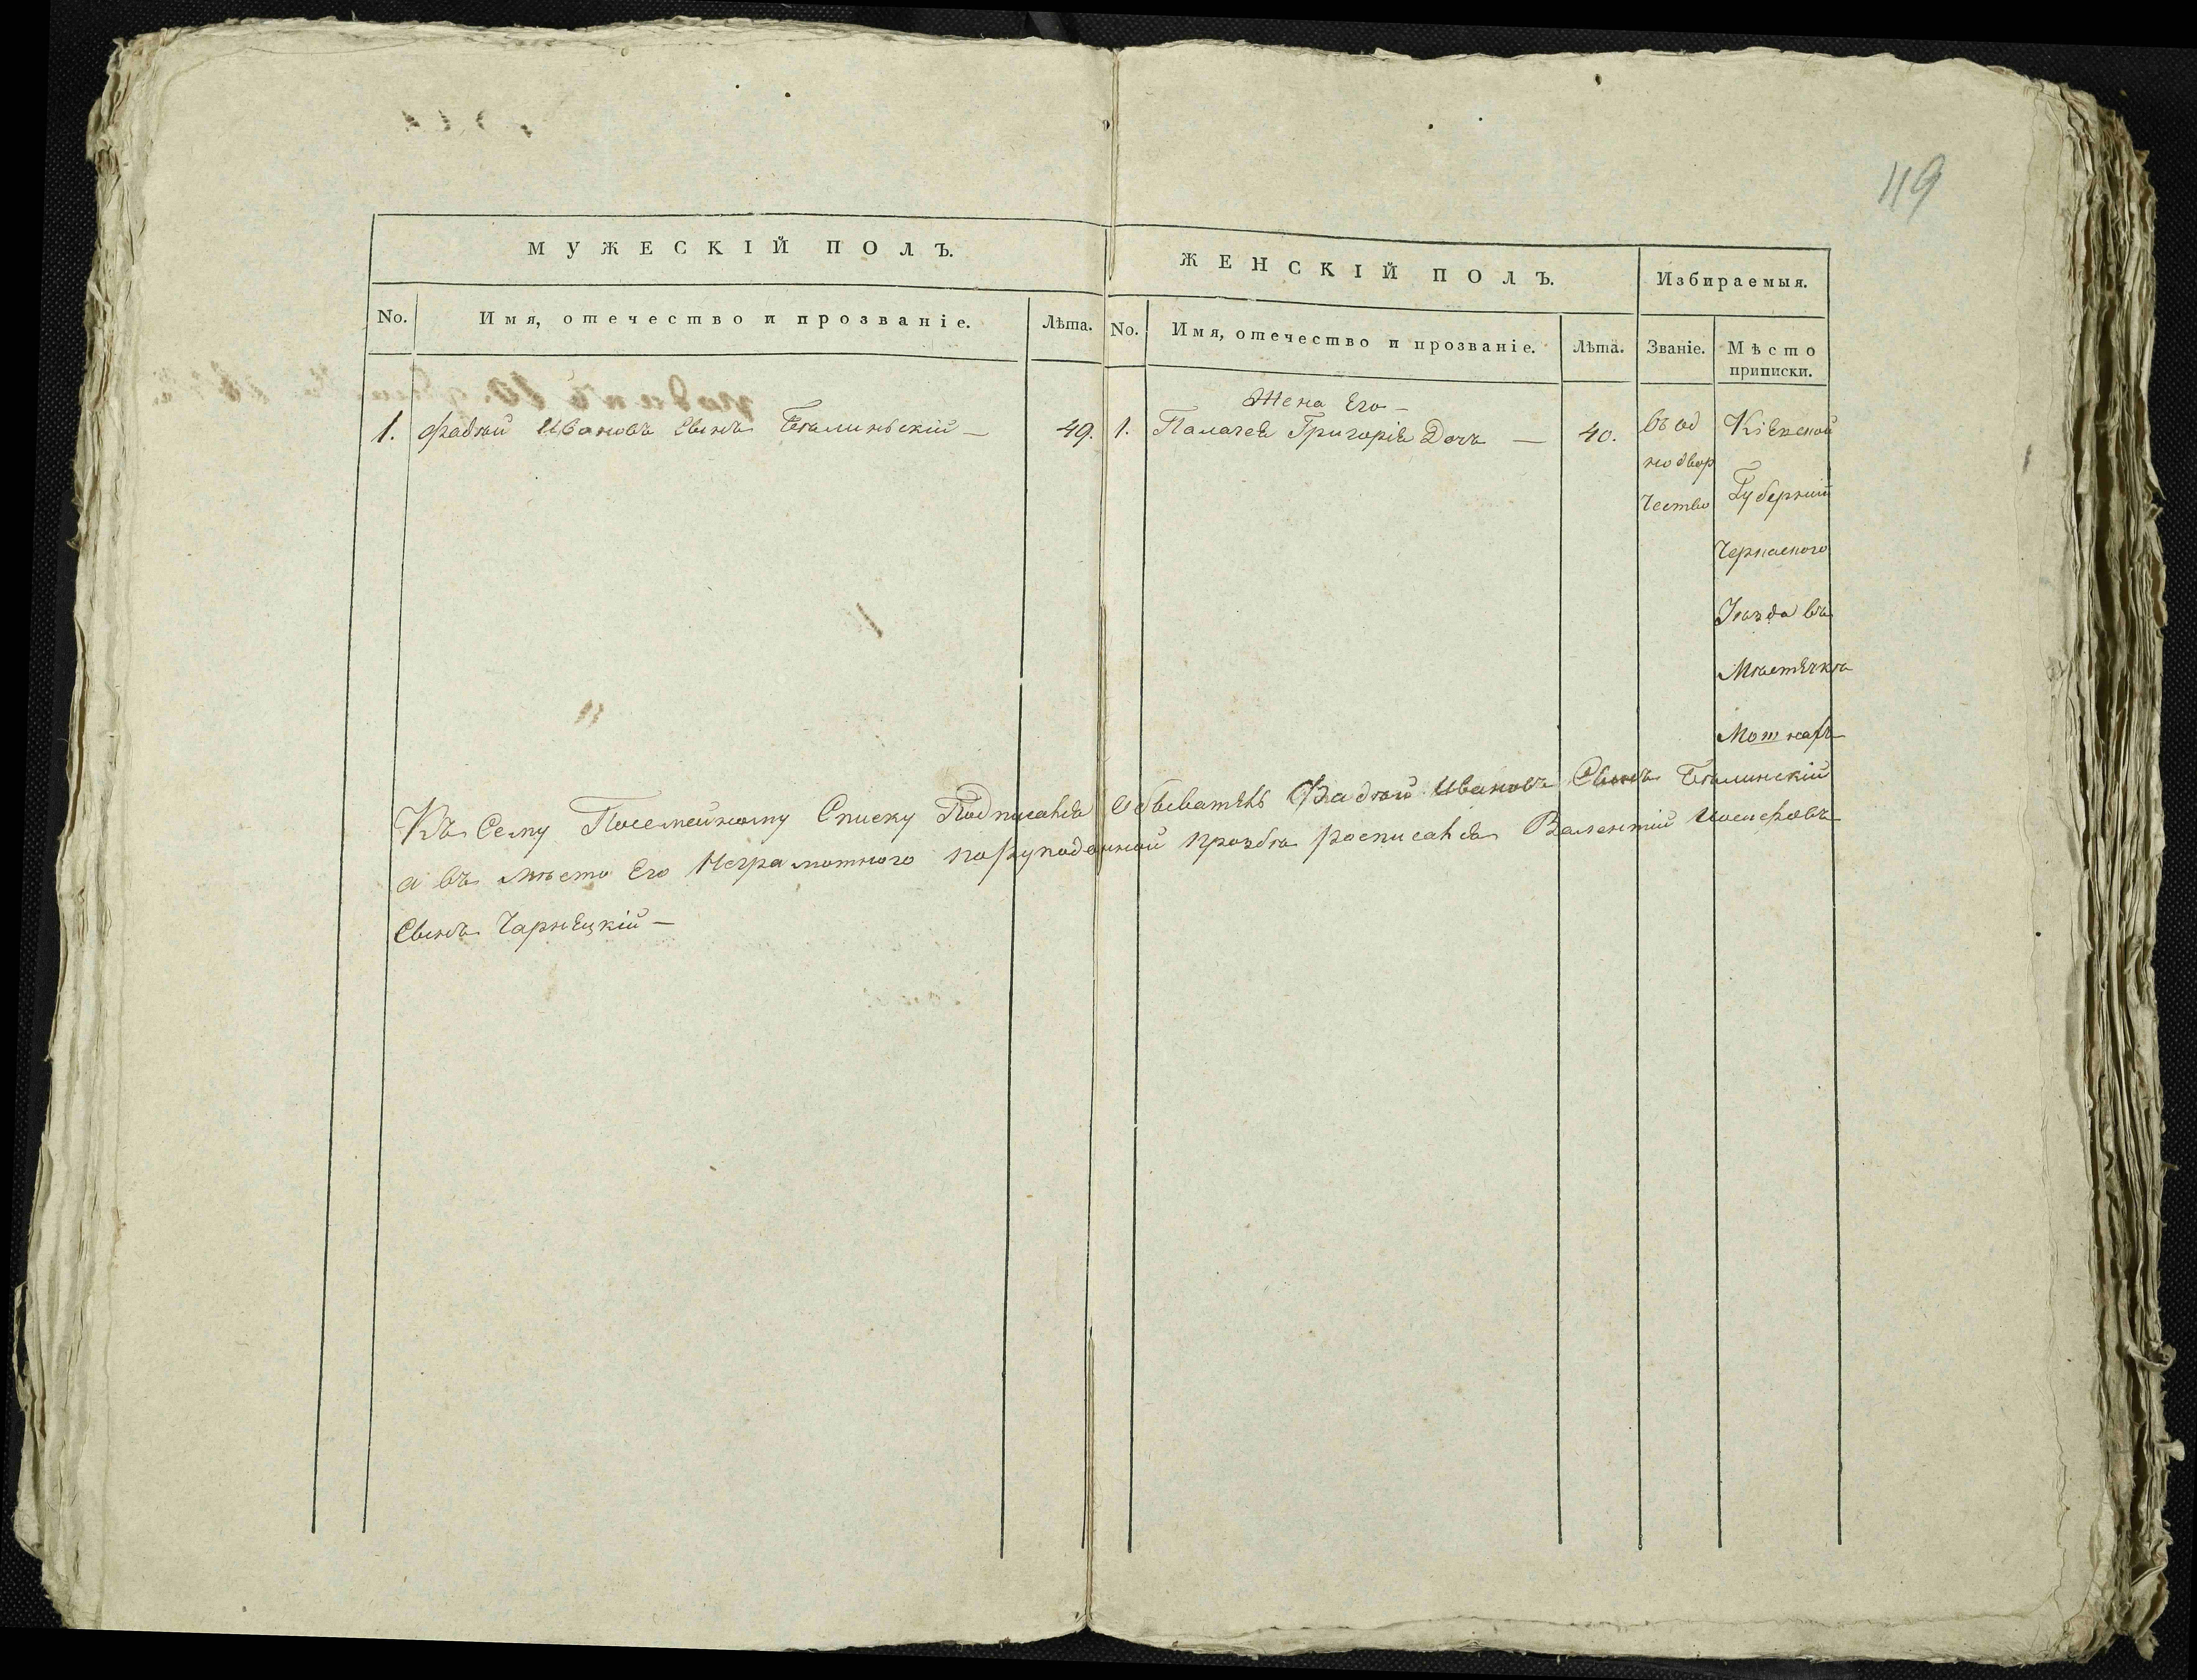 119
МУЖЕСКІЙ ПОЛЪ.
ЖЕНСКІЙ ПОЛЪ.
Избираемыя.
No.
Имя, отечество и прозваніе.
Лѣта.
No.
Имя, отечество и прозваніе.
Лѣта.
Званіе.
Мѣсто
приписки.
1. Фадѣй Ивановъ Сынъ Бѣлиньскій —
49.
Жена Его —
1. Палагея Григоріѣ Дочь —
40.
въ од
нодвор
чество
Кіевской
Губерніи
Черкаского
Уѣзда въ
Мѣстечкѣ
Къ Сему Посемейному Списку Подписался Обыватель Фадѣй Ивановъ Сынъ Бѣлинскій
а въ мѣсто Его Неграмотного порукоданной прозбѣ росписался Валентій Иосифовъ
Сынъ Чарнецкій —